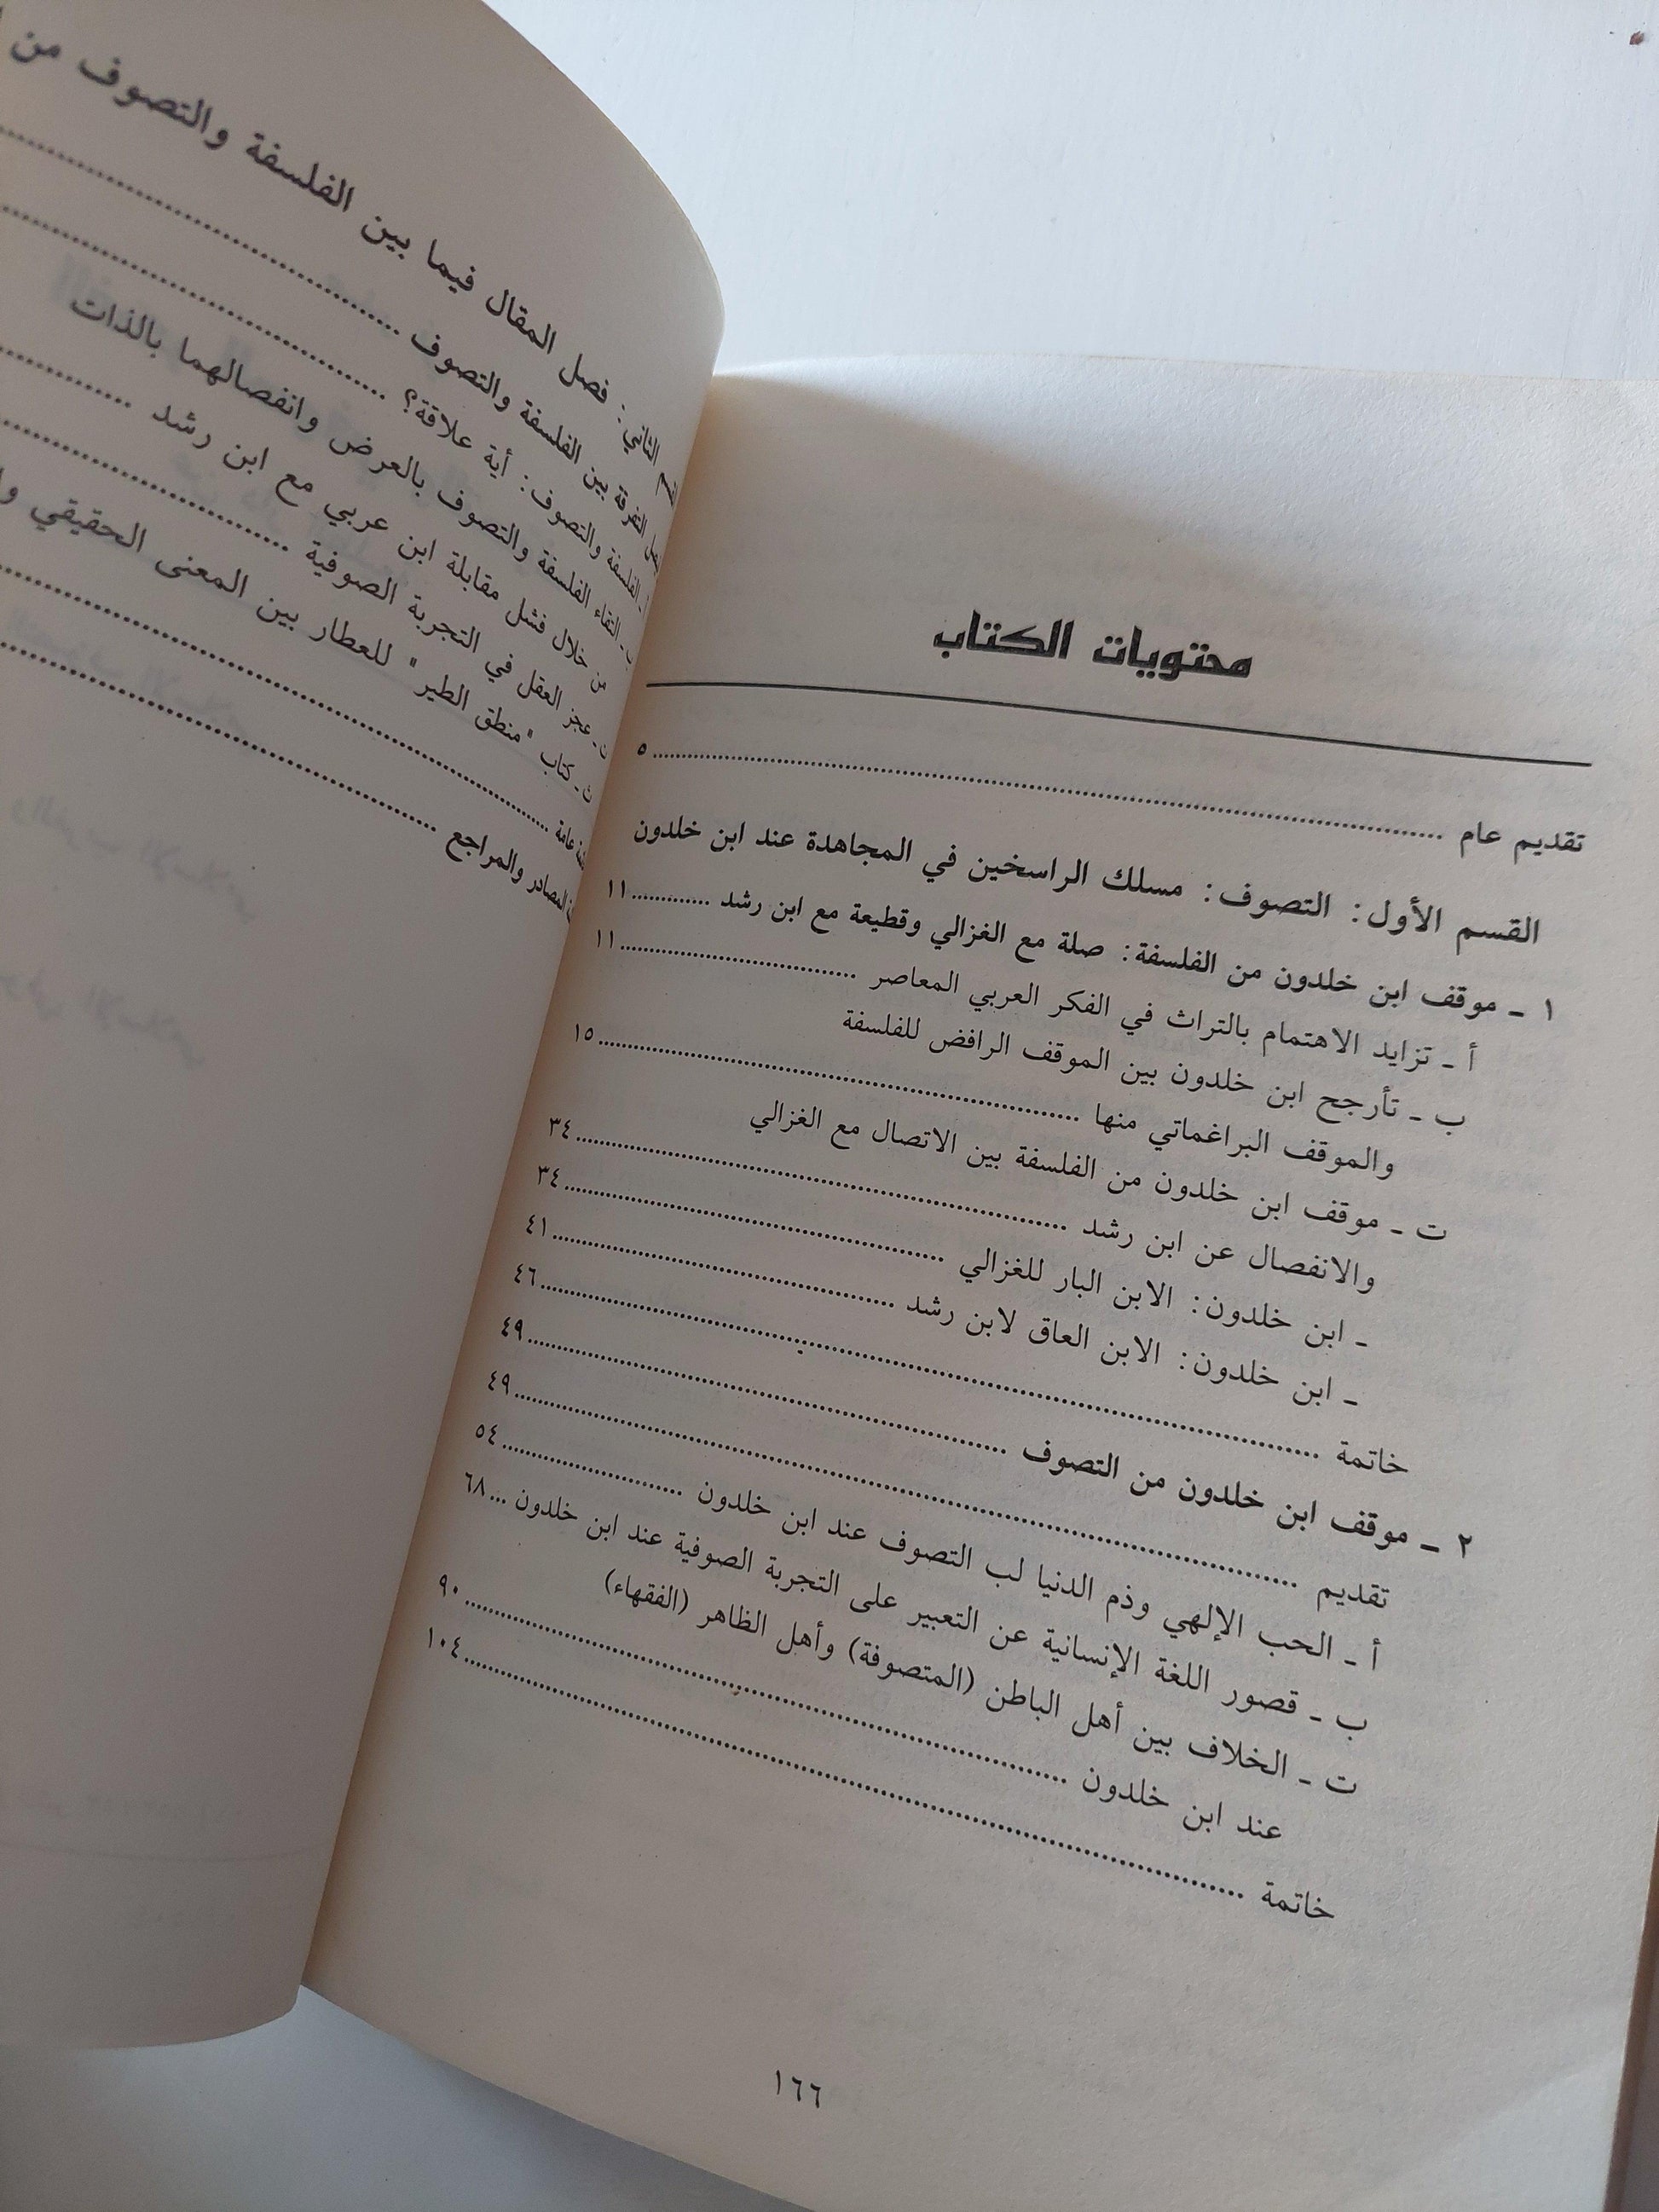 محتويات الكتاب
تقديم عام ........ ٥
القسم الأول: التصوف: مسلك الراسخين في المجاهدة عند ابن خلدون
١ ـ موقف ابن خلدون من الفلسفة: صلة مع الغزالي وقطيعة مع ابن رشد ........ ١١
أ ـ تزايد الاهتمام بالتراث في الفكر العربي المعاصر ........ ١١
ب ـ تأرجح ابن خلدون بين الموقف الرافض للفلسفة
والموقف البراغماتي منها ........ ١٥
ت ـ موقف ابن خلدون من الفلسفة بين الاتصال مع الغزالي
والانفصال عن ابن رشد ........ ٣٤
ـ ابن خلدون: الابن البار للغزالي ........ ٣٤
ـ ابن خلدون: الابن العاق لابن رشد ........ ٤١
خاتمة ........ ٤٦
٢ ـ موقف ابن خلدون من التصوف ........ ٤٩
تقديم ........ ٤٩
أ ـ الحب الإلهي وذم الدنيا لب التصوف عند ابن خلدون ........ ٥٤
ب ـ قصور اللغة الإنسانية عن التعبير على التجربة الصوفية عند ابن خلدون ... ٦٨
ت ـ الخلاف بين أهل الباطن (المتصوفة) وأهل الظاهر (الفقهاء)
عند ابن خلدون ........ ٩٠
خاتمة ........ ١٠٤
١٦٦
الثاني: فصل المقال فيما بين الفلسفة والتصوف من
التفرقة بين الفلسفة والتصوف ........
أ ـ الفلسفة والتصوف: أية علاقة؟ ........
ب ـ التقاء الفلسفة والتصوف بالعرض وانفصالهما بالذات
من خلال فشل مقابلة ابن عربي مع ابن رشد ........
ت ـ عجز العقل في التجربة الصوفية ........
ث ـ كتاب "منطق الطير" للعطار بين المعنى الحقيقي
عامة ........
المصادر والمراجع ........